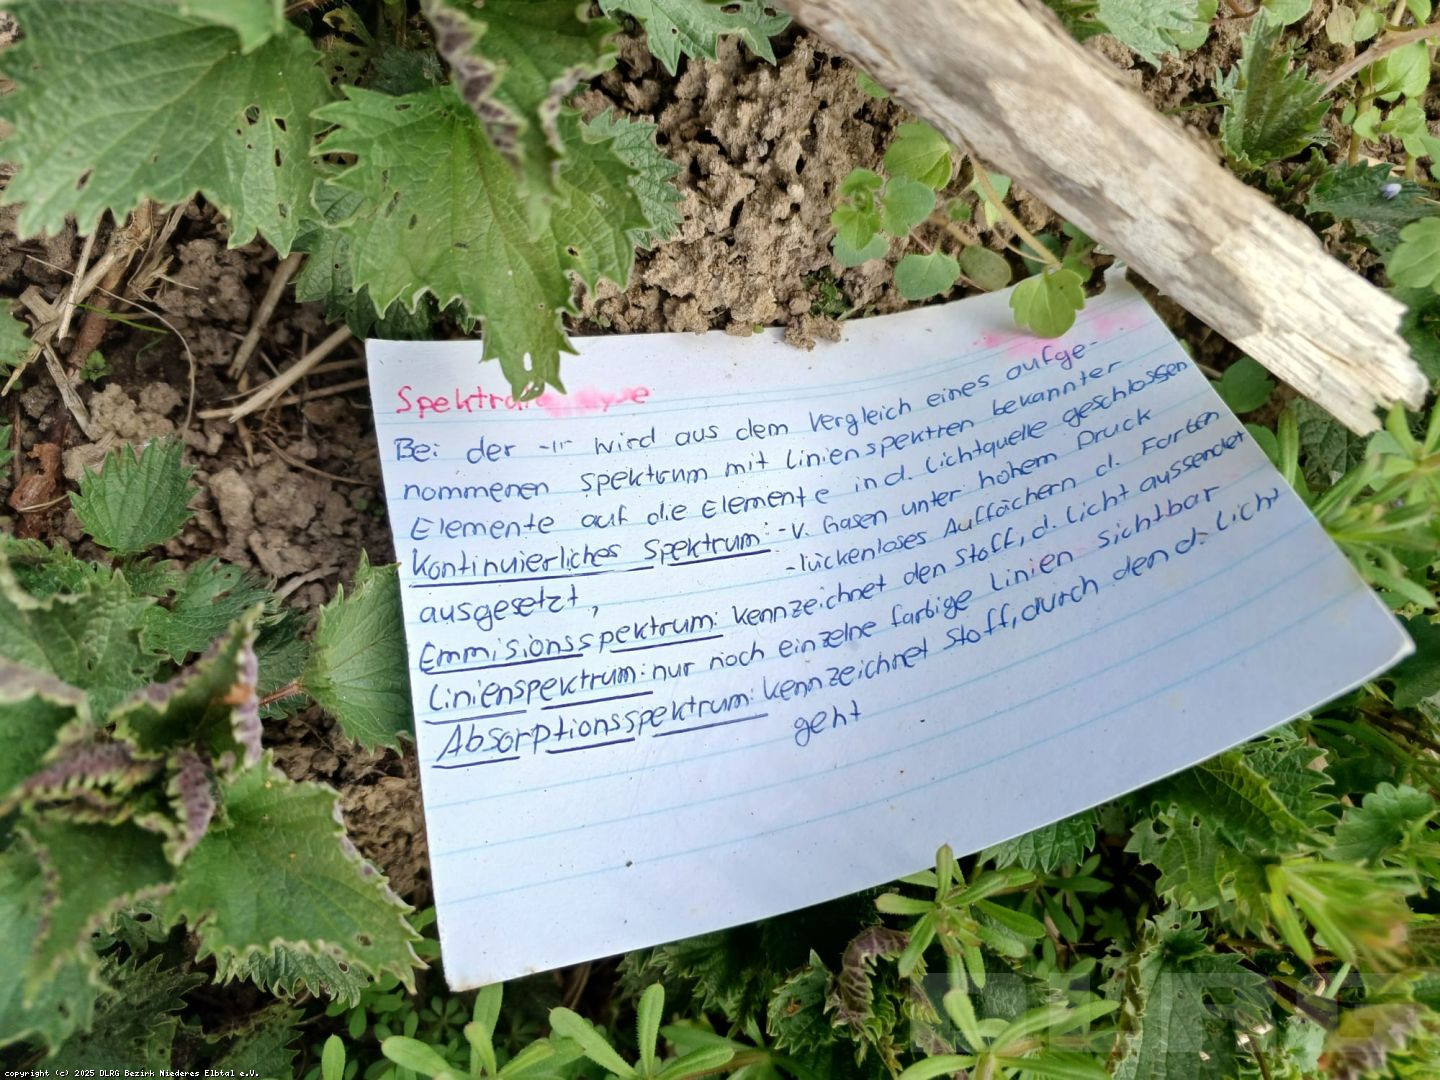 Bei der -"- wird aus dem Vergleich eines aufge-
nommenen Spektrum mit Linienspektren bekannter
Elemente auf die Elemente in d. Lichtquelle geschlossen
Kontinuierliches Spektrum: - v. Gasen unter hohem Druck
ausgesetzt, - lückenloses Auffächern d. Farben
Emmisionsspektrum: kennzeichnet den Stoff, d. Licht aussendet
Linienspektrum: nur noch einzelne farbige Linien sichtbar
Absorptionsspektrum: kennzeichnet Stoff, durch den d. Licht
geht
copyright (c) 2025 DLRG Bezirk Niederes Elbtal e.V.
DLRG